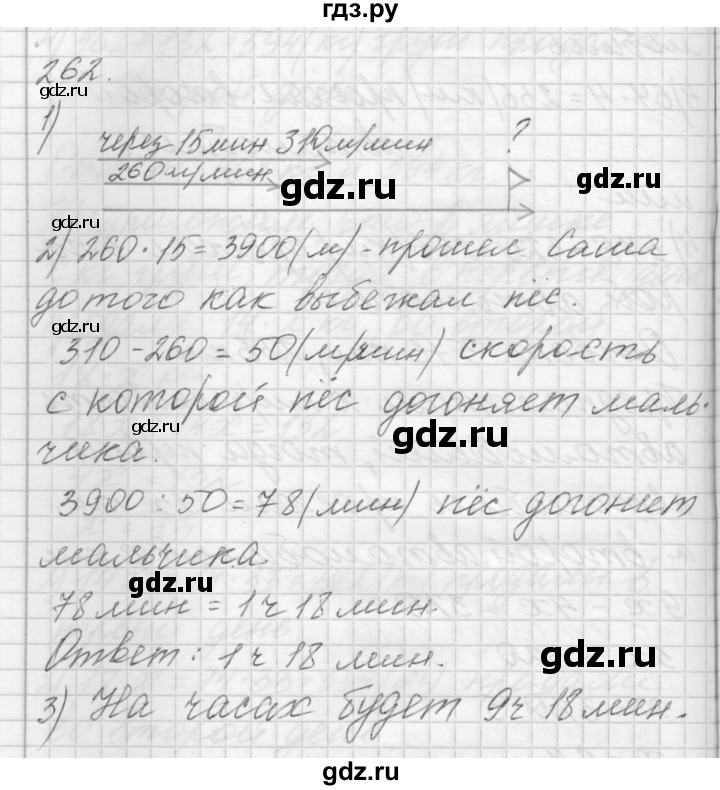 гдз.ру
262.
gdz.ru
1)
через 15 мин 310 м/мин
?
260 м/мин
gdz.ru
gdz.ru
gdz.ru
2) 260 · 15 = 3900 (м) - прошел Саша
до того как выбежал пёс.
gdz.ru
310 - 260 = 50 (м/мин) скорость
с которой пёс догоняет маль-
gdz.ru
gdz.ru
чика.
3900 : 50 = 78 (мин) пёс догонит
мальчика
gdz.ru
78 мин = 1 ч 18 мин.
gdz.ru
Ответ: 1 ч 18 мин.
gdz.ru
3) На часах будет 9 ч 18 мин.
gdz.ru